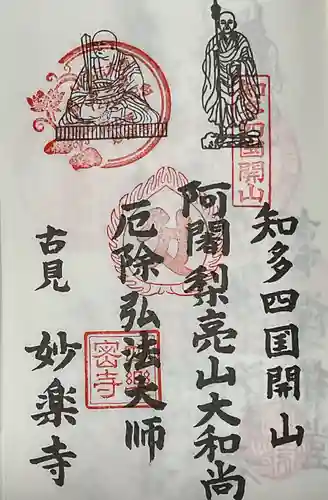 知多四国開山
阿闍梨亮山大和尚
厄除弘法大師
古見
妙楽寺